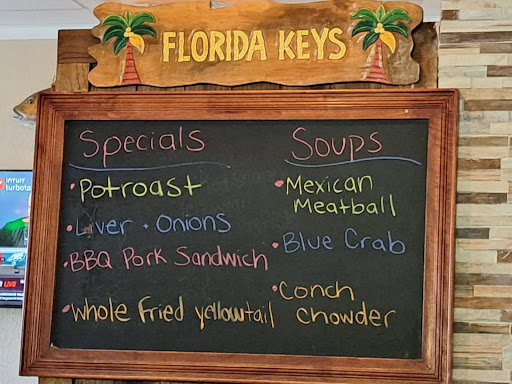 FLORIDA KEYS
Specials
• Potroast
• Liver + Onions
• BBQ Pork Sandwich
• Whole fried yellowtail
Soups
• Mexican
Meatball
• Blue Crab
• Conch
chowder
INTUIT
turbota
LIVE